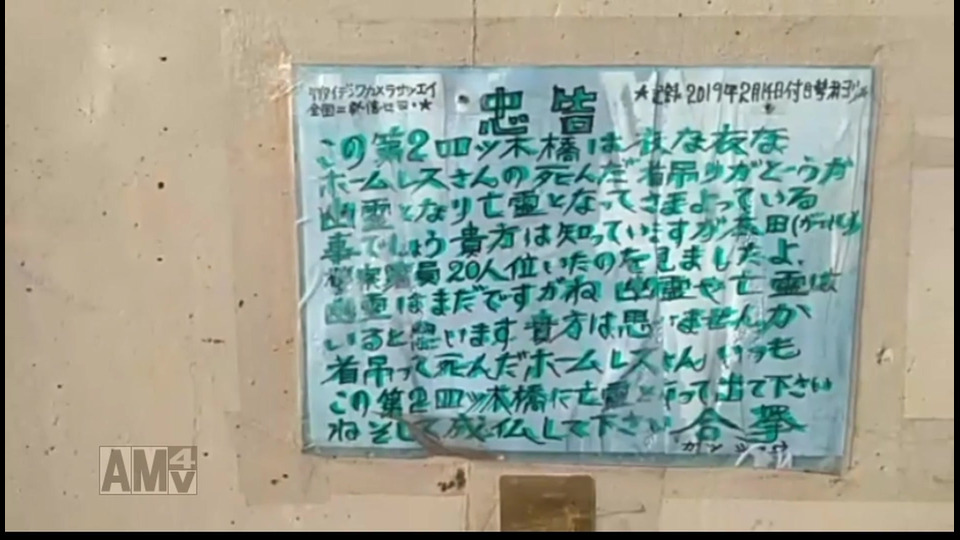 ケイタイデンワカメラサツエイ
全国ニ
★
★記録 2019年2月14日付
忠告
この第2四ッ木橋は夜な夜な
ホームレスさんの死んだ首吊りがとうか
幽霊となり亡霊となってさまよっている
事でしょう貴方は知っていますが
警察署員20人位いたのを見ましたよ、
幽霊はまだですがね 幽霊や亡霊は
いると思います 貴方は思いませんか
首吊って死んだホームレスさん いつも
この第2四ッ木橋に亡霊となって出て下さい
ねそして成仏して下さい 合掌
AM4V